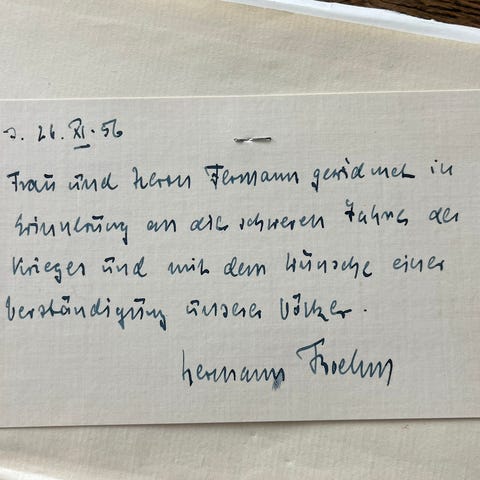 d. 26. XI. 56
Frau und Herrn Fermann gewidmet in
Erinnerung an die schweren Jahre des
Krieges und mit dem Wunsche einer
Verständigung unserer Völker.
Hermann Boehm